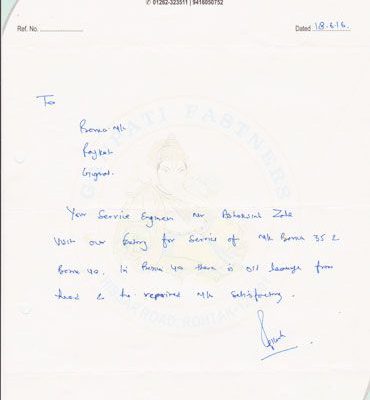 ✆ 01262-323511 | 9416050752
Ref. No.
Dated 18.6.16.
To
Borna M/c
Rajkot
Gujrat.
GANPATI FASTNERS
Your Service Engineer Mr Ashokviat Zala
Visit our factory for Service of M/c Borna 35 &
Borna 40. In Borna 40 there is oil leakage from
head & he repaired M/c Satisfactory.
ROAD, ROHTAK